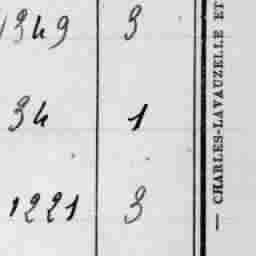 1349 3
34 1
1221 3
— CHARLES-LAVAUZELLE ET